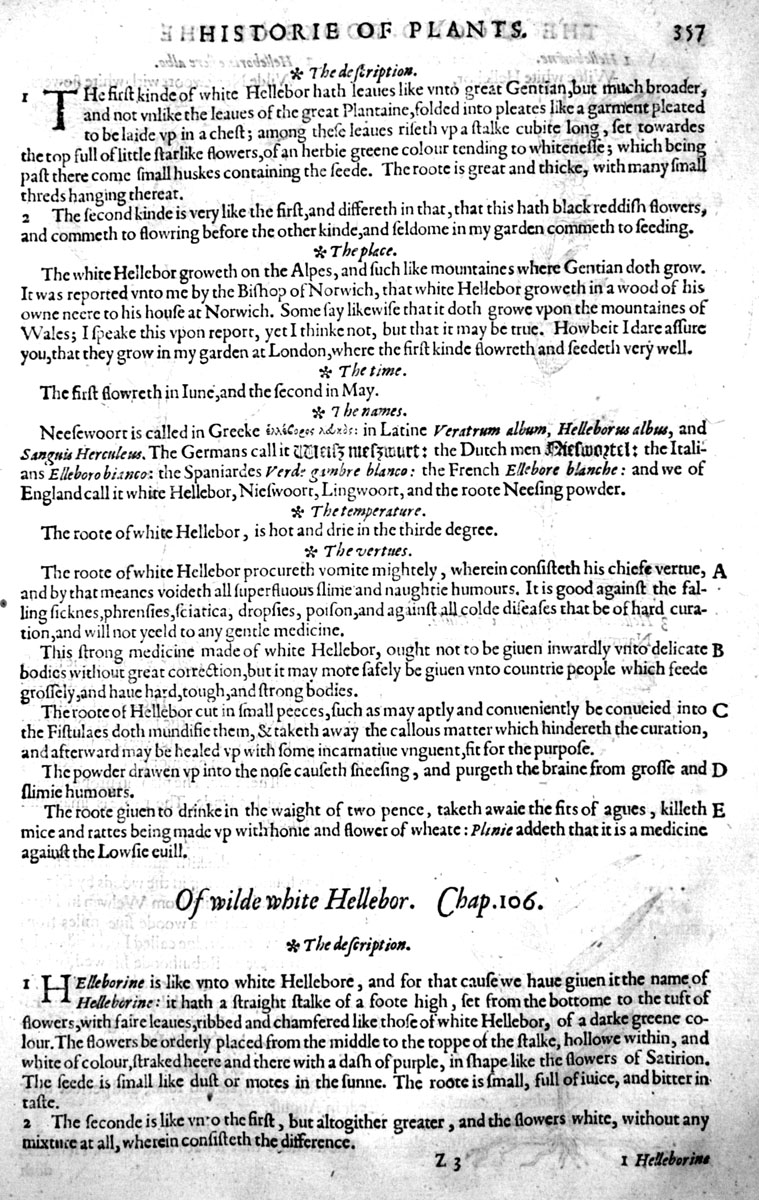 HISTORIE OF PLANTS. 357
✻ The deſcription.
1 THe firſt kinde of white Hellebor hath leaues like vnto great Gentian, but much broader,
and not vnlike the leaues of the great Plantaine, folded into pleates like a garment pleated
to be laide vp in a cheſt; among theſe leaues riſeth vp a ſtalke cubite long, ſet towardes
the top full of little ſtarlike flowers, of an herbie greene colour tending to whiteneſſe; which being
paſt there come ſmall huskes containing the ſeede. The roote is great and thicke, with many ſmall
threds hanging thereat.
2 The ſecond kinde is very like the firſt, and differeth in that, that this hath black reddiſh flowers,
and commeth to flowring before the other kinde, and ſeldome in my garden commeth to ſeeding.
✻ The place.
The white Hellebor groweth on the Alpes, and ſuch like mountaines where Gentian doth grow.
It was reported vnto me by the Biſhop of Norwich, that white Hellebor groweth in a wood of his
owne neere to his houſe at Norwich. Some ſay likewiſe that it doth growe vpon the mountaines of
Wales; I ſpeake this vpon report, yet I thinke not, but that it may be true. Howbeit I dare aſſure
you, that they grow in my garden at London, where the firſt kinde flowreth and ſeedeth very well.
✻ The time.
The firſt flowreth in Iune, and the ſecond in May.
✻ The names.
Neeſewoort is called in Greeke in Latine Veratrum album, Helleborus albus, and
Sanguis Herculeus. The Germans call it Weiſz nieſzwurt: the Dutch men Nieſwortel: the Itali-
ans Elleboro bianco: the Spaniardes Verde gambre blanco: the French Ellebore blanche: and we of
England call it white Hellebor, Nieſwoort, Lingwoort, and the roote Neeſing powder.
✻ The temperature.
The roote of white Hellebor, is hot and drie in the thirde degree.
✻ The vertues.
The roote of white Hellebor procureth vomite mightely, wherein conſiſteth his chiefe vertue, A
and by that meanes voideth all ſuperfluous ſlime and naughtie humours. It is good againſt the fal-
ling ſicknes, phrenſies, ſciatica, dropſies, poiſon, and againſt all colde diſeaſes that be of hard cura-
tion, and will not yeeld to any gentle medicine.
This ſtrong medicine made of white Hellebor, ought not to be giuen inwardly vnto delicate B
bodies without great correction, but it may more ſafely be giuen vnto countrie people which feede
groſſely, and haue hard, tough, and ſtrong bodies.
The roote of Hellebor cut in ſmall peeces, ſuch as may aptly and conueniently be conueied into C
the Fiſtulaes doth mundifie them, & taketh away the callous matter which hindereth the curation,
and afterward may be healed vp with ſome incarnatiue vnguent, fit for the purpoſe.
The powder drawen vp into the noſe cauſeth ſneeſing, and purgeth the braine from groſſe and D
ſlimie humours.
The roote giuen to drinke in the waight of two pence, taketh awaie the fits of agues, killeth E
mice and rattes being made vp with honie and flower of wheate: Plinie addeth that it is a medicine
againſt the Lowſie euill.
Of wilde white Hellebor. Chap. 106.
✻ The deſcription.
1 HElleborine is like vnto white Hellebore, and for that cauſe we haue giuen it the name of
Helleborine: it hath a ſtraight ſtalke of a foote high, ſet from the bottome to the tuft of
flowers, with faire leaues, ribbed and chamfered like thoſe of white Hellebor, of a darke greene co-
lour. The flowers be orderly placed from the middle to the toppe of the ſtalke, hollowe within, and
white of colour, ſtraked heere and there with a daſh of purple, in ſhape like the flowers of Satirion.
The ſeede is ſmall like duſt or motes in the ſunne. The roote is ſmall, full of iuice, and bitter in
taſte.
2 The ſeconde is like vnto the firſt, but altogither greater, and the flowers white, without any
mixture at all, wherein conſiſteth the difference.
Z 3 1 Helleborine